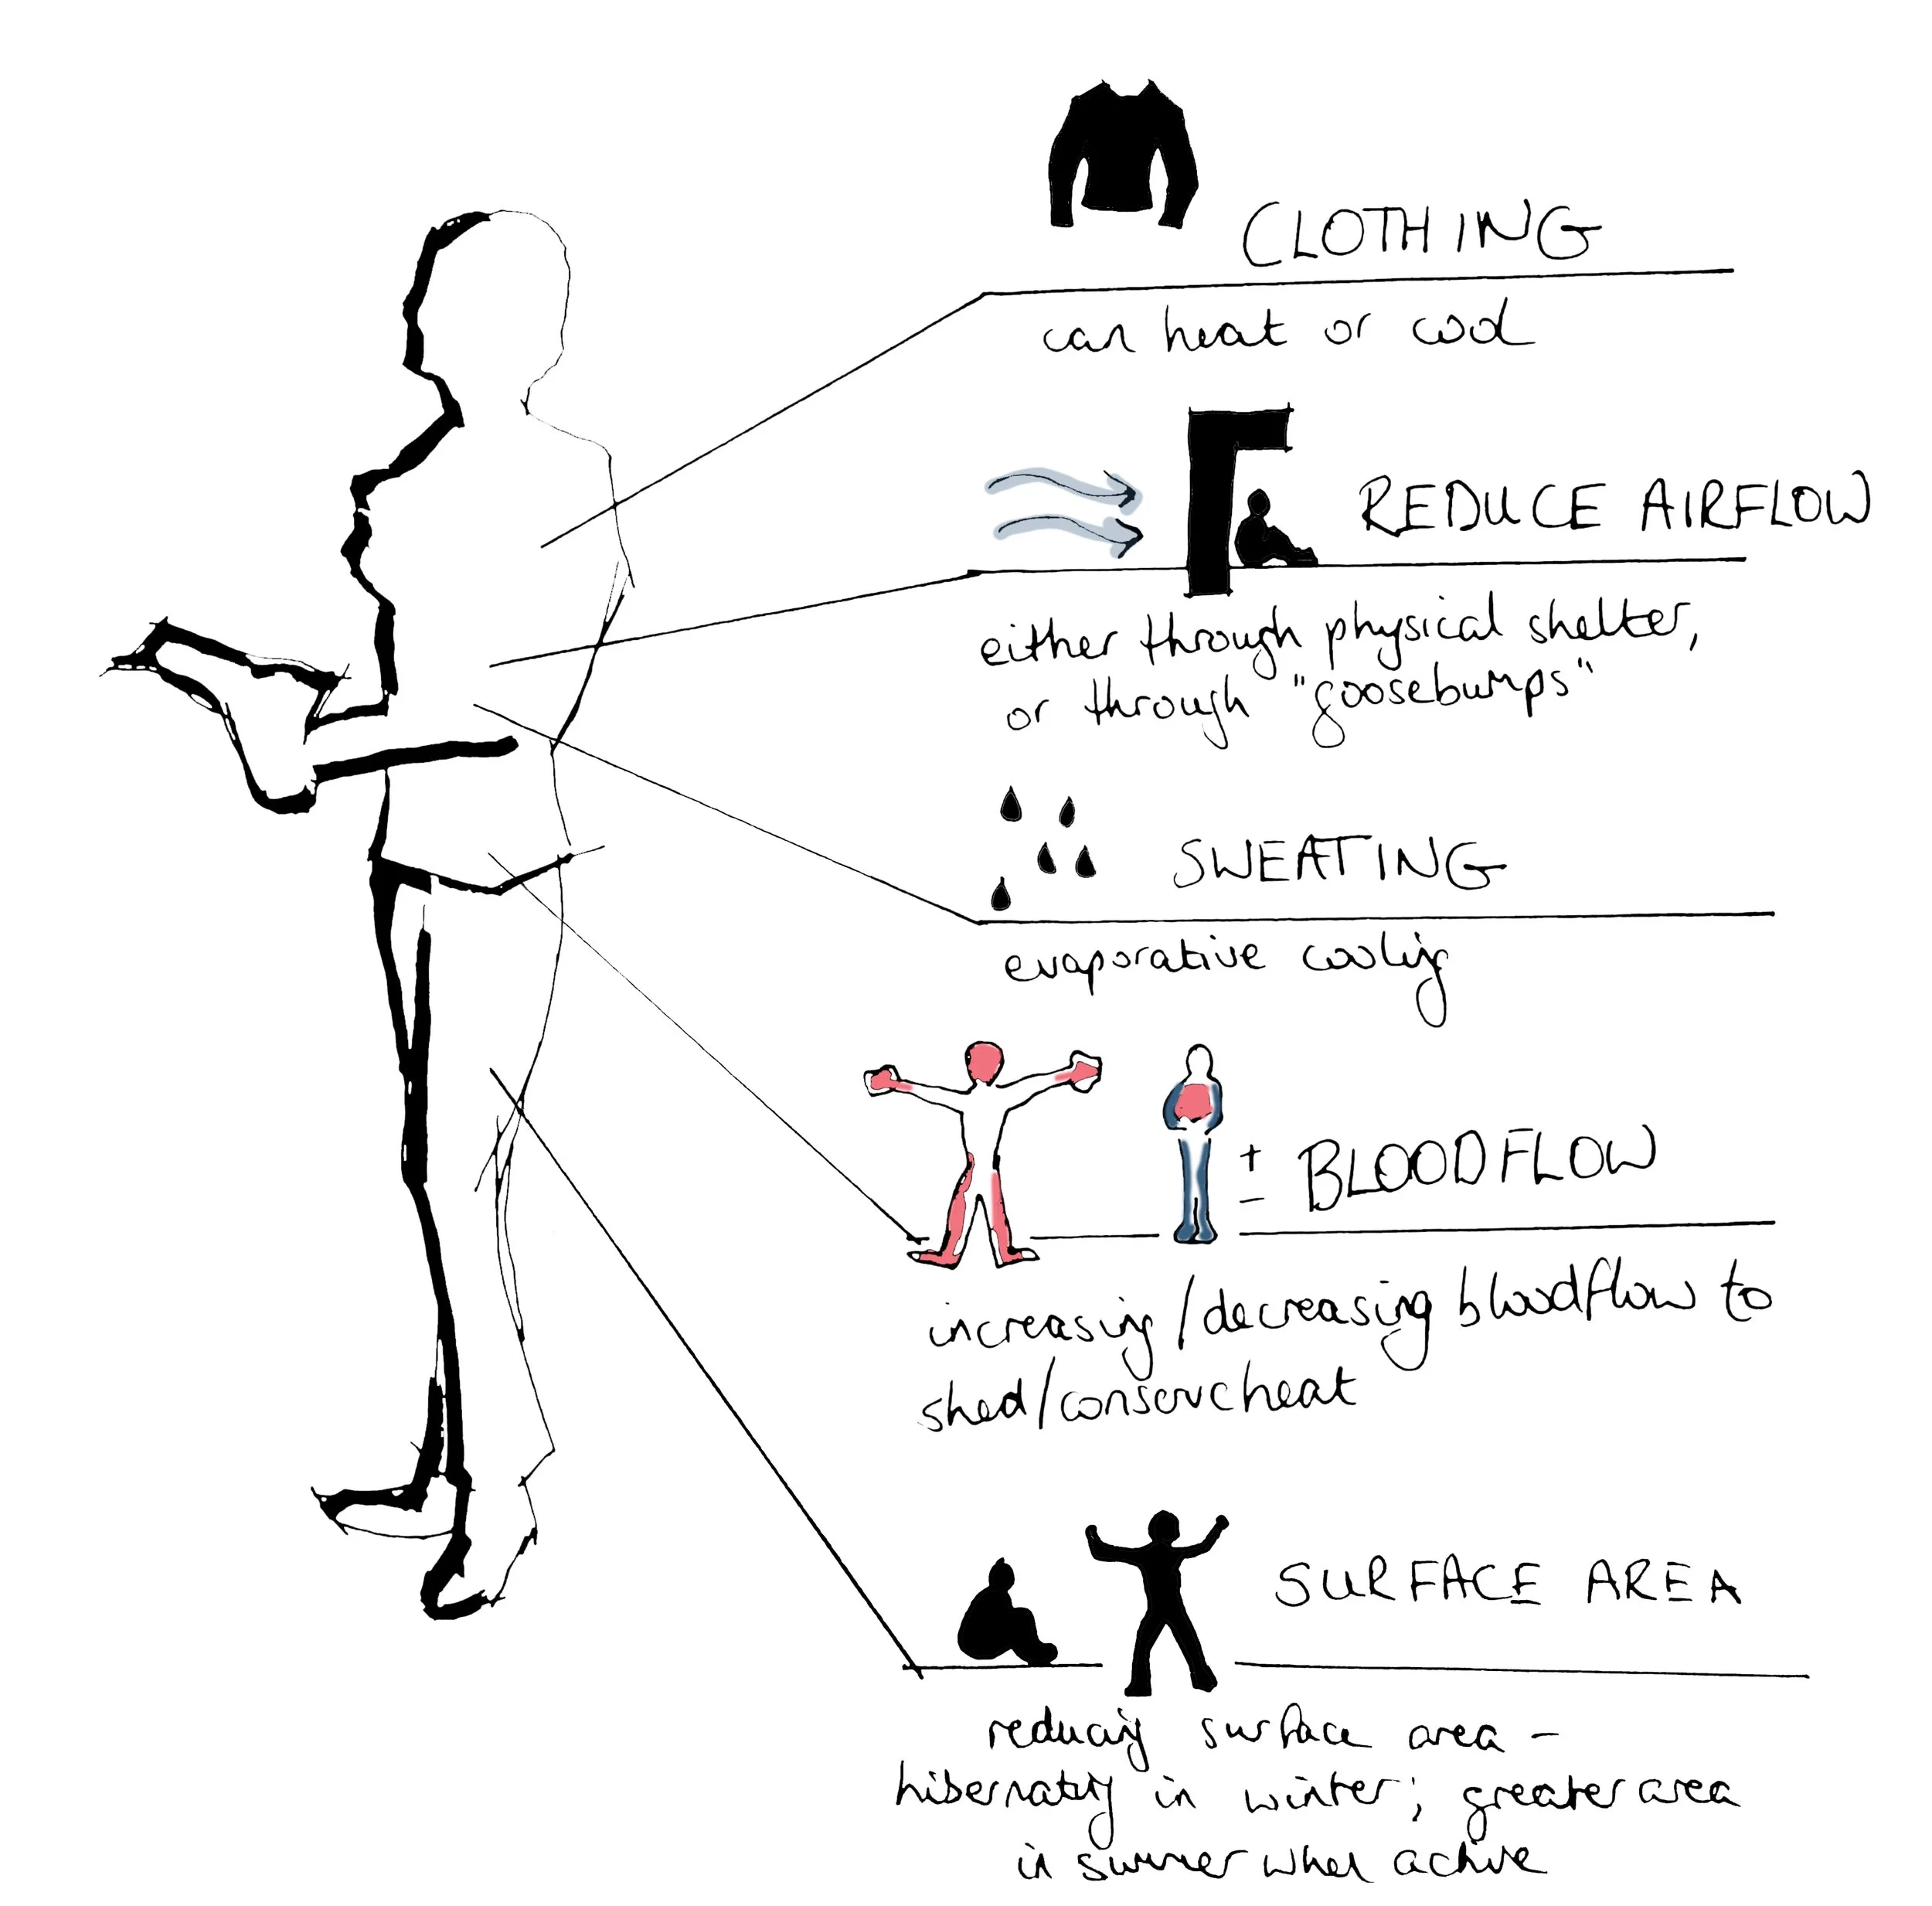 CLOTHING
can heat or cool
REDUCE AIRFLOW
either through physical shelter,
or through "goosebumps"
SWEATING
evaporative cooling
+
- BLOODFLOW
increasing/decreasing bloodflow to
shed/conserve heat
SURFACE AREA
reducing surface area -
hibernating in winter; greater area
in summer when active